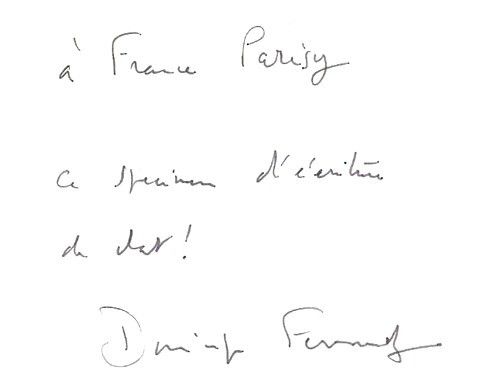 à France Parisy
ce specimen d'écriture
de chat!
Dominique Fernandez